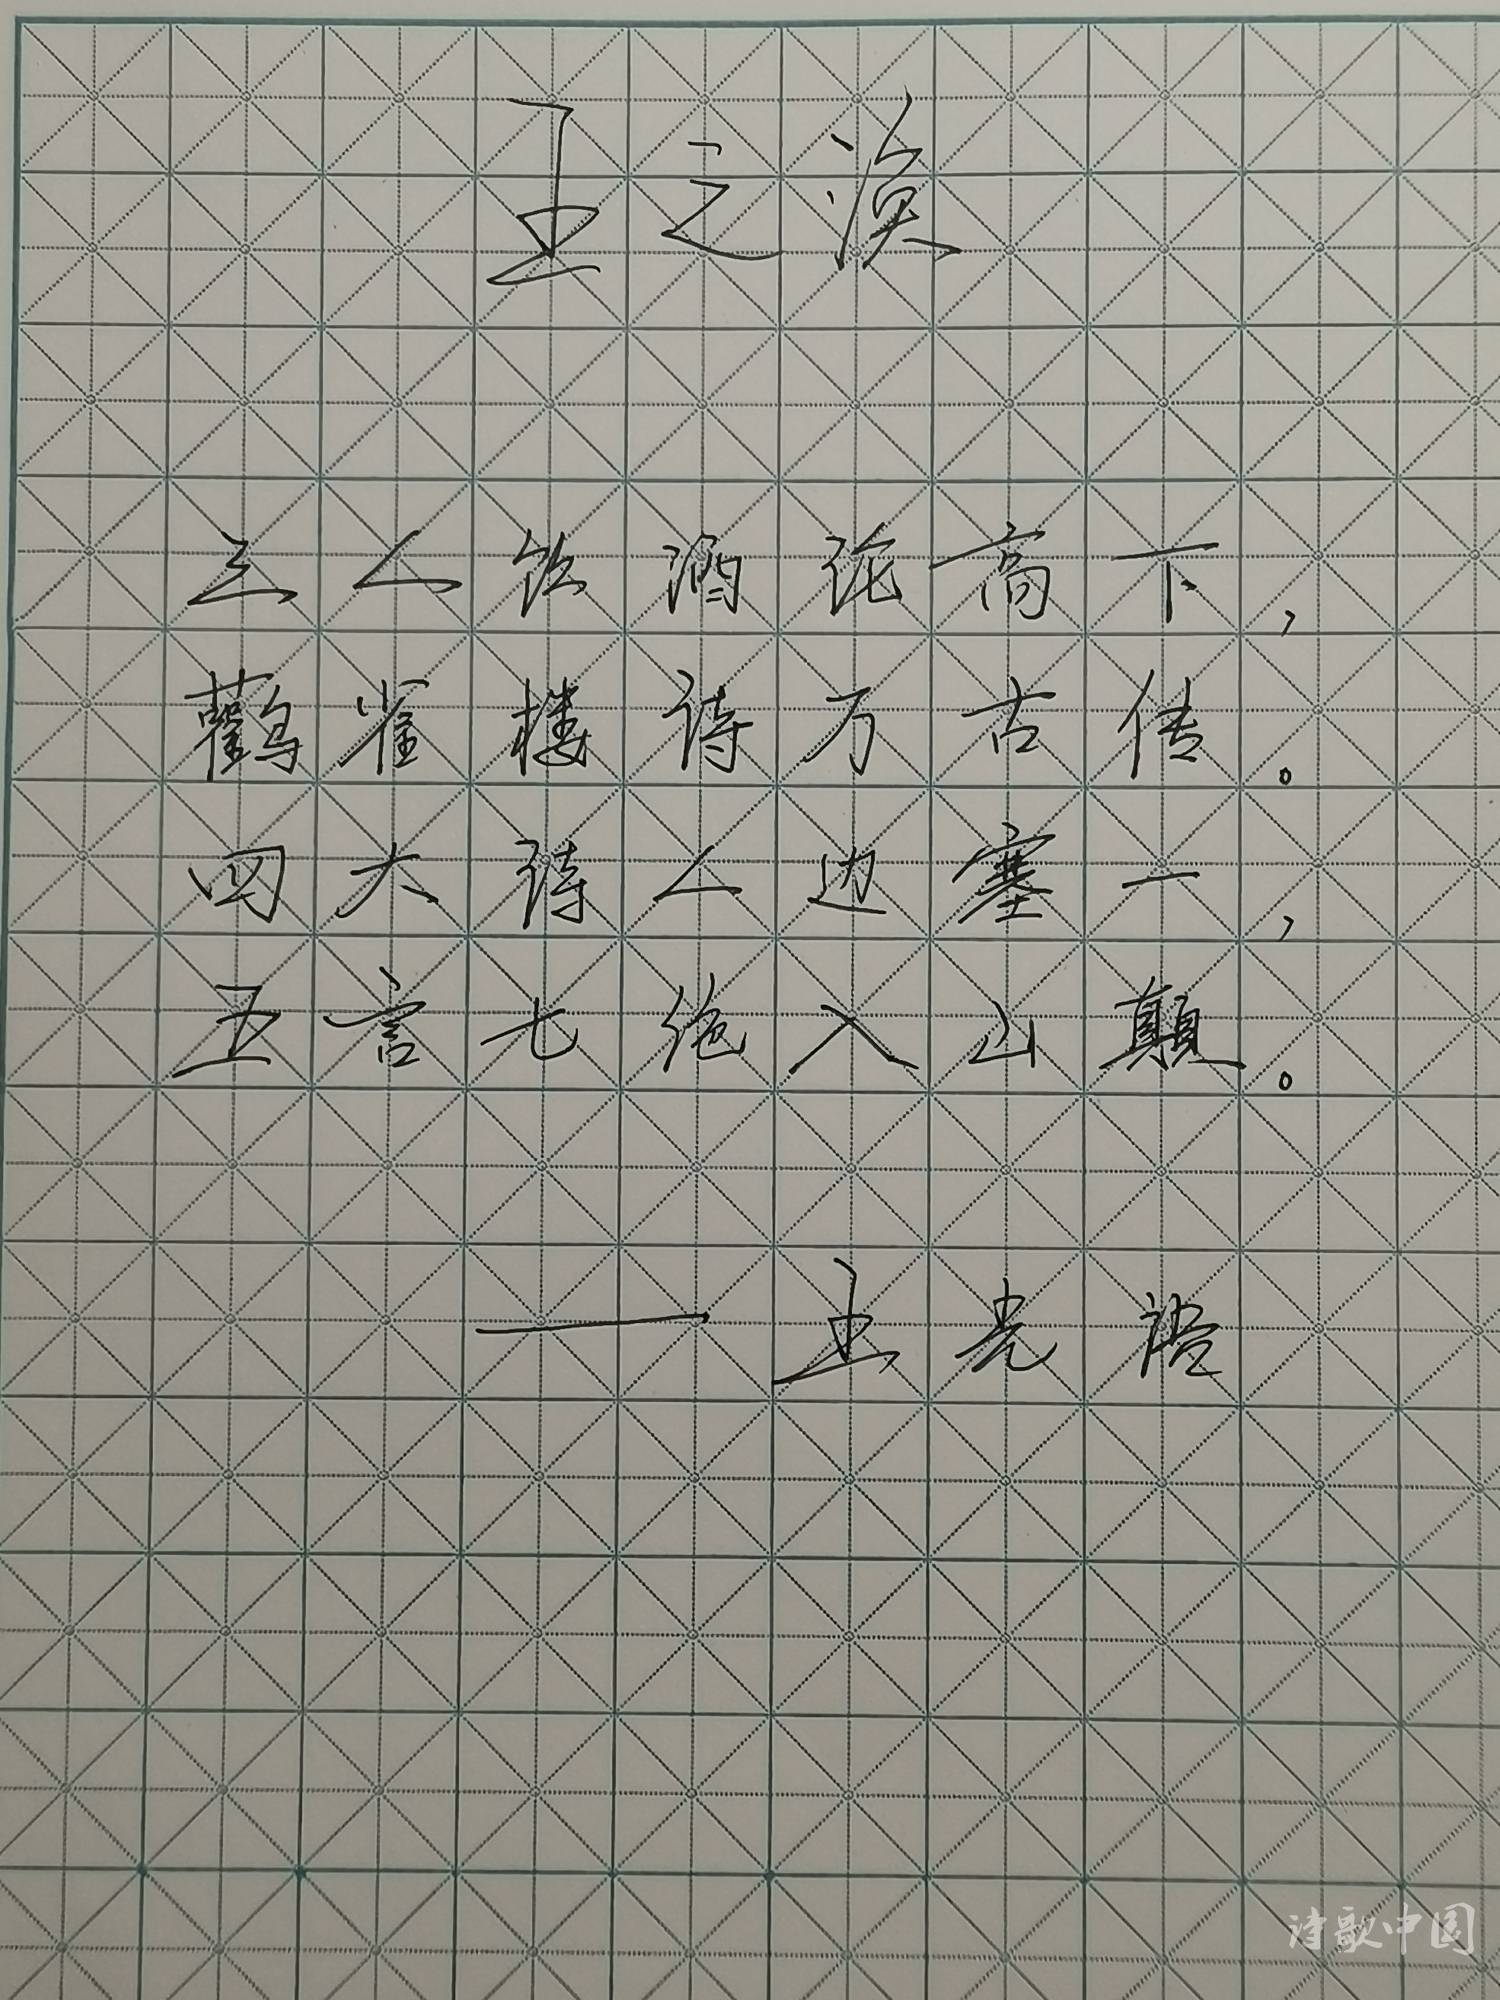 王之涣
三人饮酒论高下，
鹳雀楼诗万古传。
四大诗人边塞一，
五言七绝入山颠。
——王光
诗歌中国